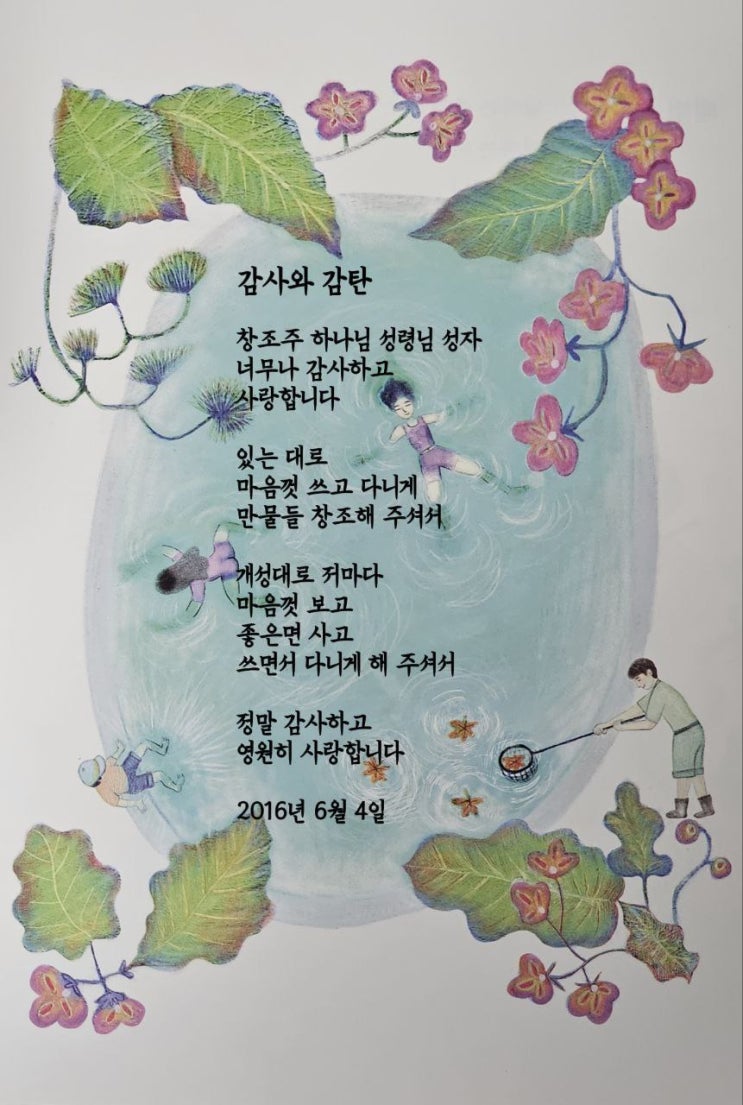 감사와 감탄
창조주 하나님 성령님 성자
너무나 감사하고
사랑합니다
있는 대로
마음껏 쓰고 다니게
만물들 창조해 주셔서
개성대로 저마다
마음껏 보고
좋은면 사고
쓰면서 다니게 해 주셔서
정말 감사하고
영원히 사랑합니다
2016년 6월 4일